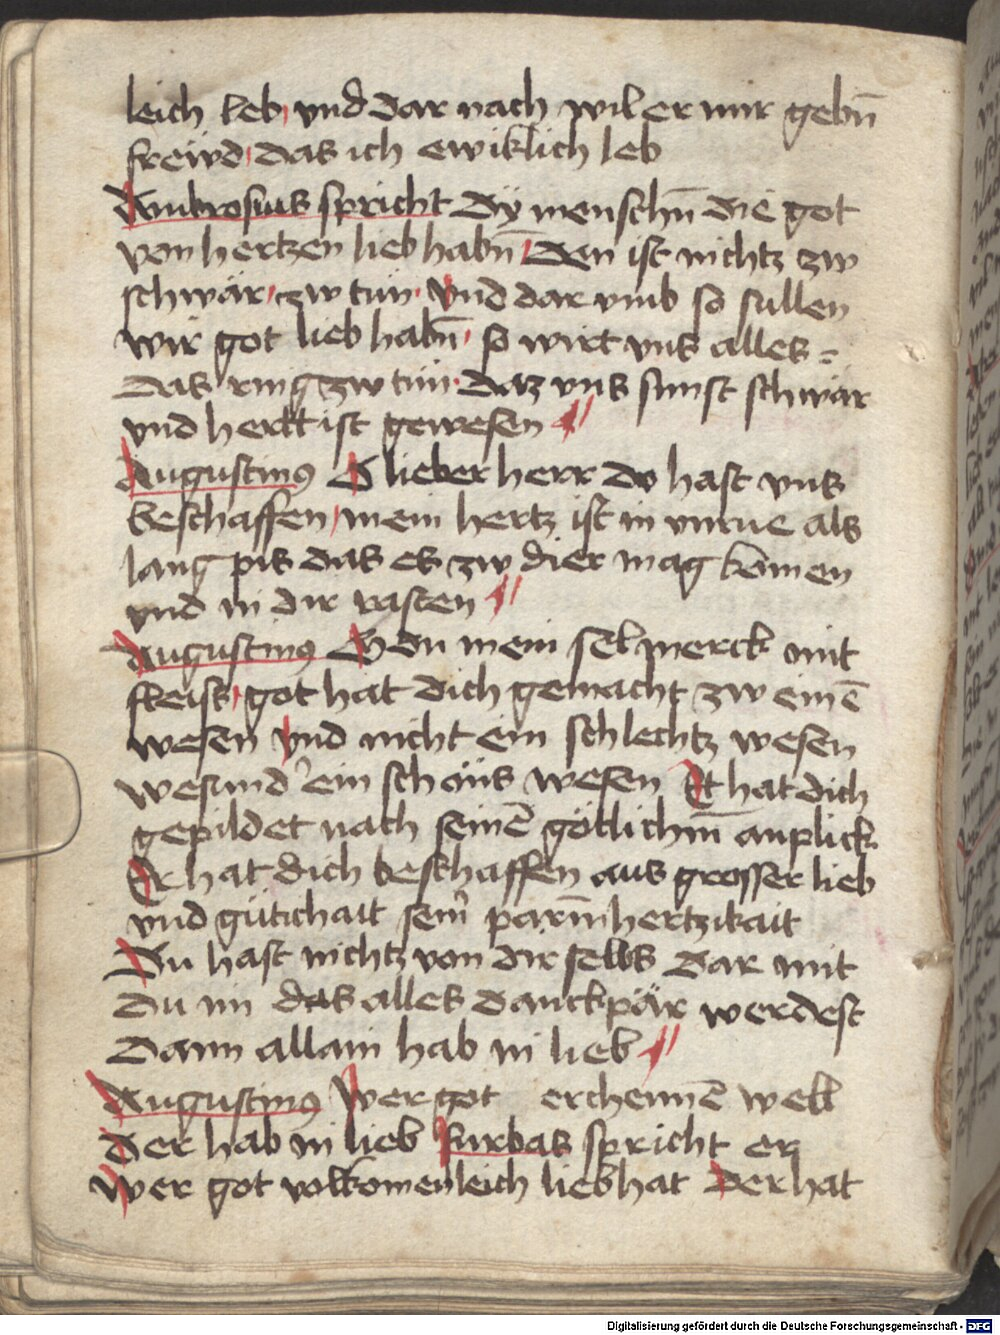 leich leb und dar nach wil er mir gebn̄
freẅd das ich ewiklich leb
Ambrosius spricht Dÿ menschn̄ die got
von hertzen lieb habn̄ Den ist nichtz zw
schwär zw tün Vnd dar vmb so sullen
wir got lieb habn̄ so wirt vns alles =
das ring zw tün daz vns sunst schwär
vnd hertt ist gewesen
Augustinꝰ O lieber herr du hast vns
beschaffen mein hertz ist in vnrue als
lang pis das es zw dier mag komen
vnd in dir rasten
Augustinꝰ O du mein sel merck mit
fleis got hat dich gemacht zw einē
wesen Vnd nicht ein schlechtz wesen
wesund' ein schöns wesen Et hat dich
gepildet nach seinē götlichm̄ anplick
Er hat dich beschaffen aus grosser lieb
vnd gütichait sein' parm̄hertzikait
Du hast nichtz von dir selbs Dar mit
du im das alles danckpär werdest
Dann allain hab in lieb
Augustinꝰ Wer got erchennē well
Der hab in lieb Furbas spricht er
Wer got volkomenleich lieb hat Der hat
Digitalisierung gefördert durch die Deutsche Forschungsgemeinschaft - DFG